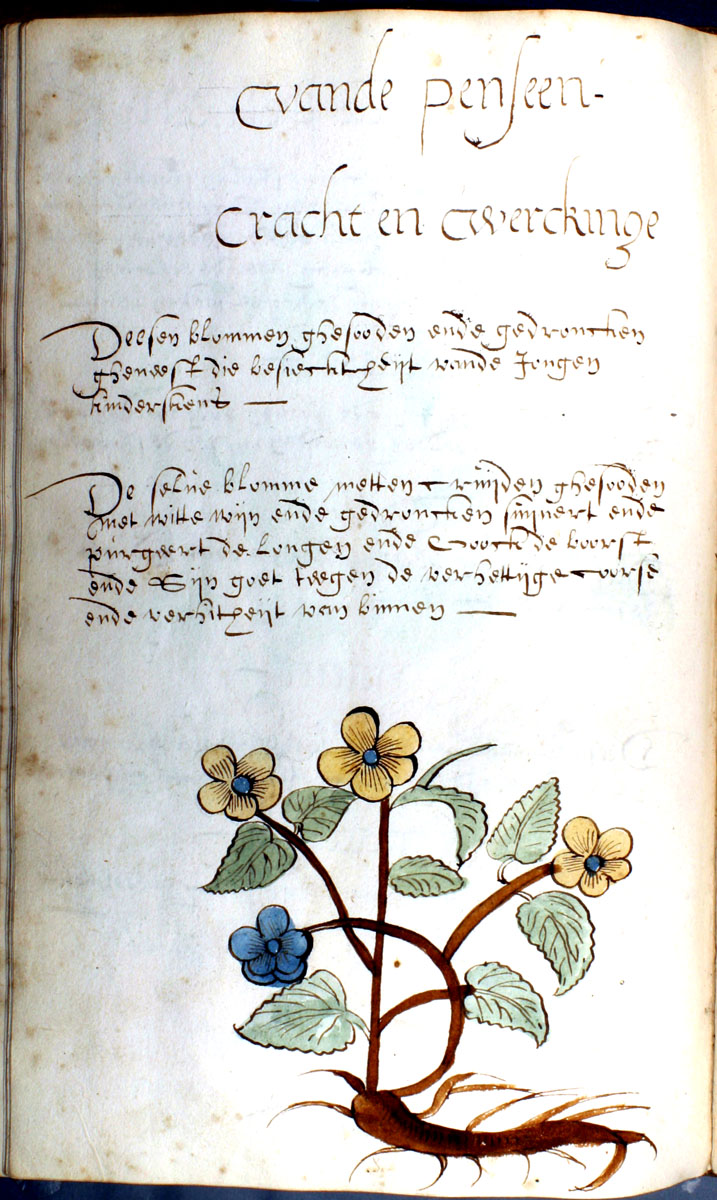 Vande penseen-
Cracht en Werckinge
Deesen blommen ghesooden ende gedroncken
gheneest die besiecktheijt vande Jongen
kinderkens —
De selve blomme metten cruijden ghesooden
met witte wijn ende gedroncken suijvert ende
purgeert de Longen endeOock de borst
ende Sijn goet teegen de verhettijge coorse
ende verhitheijt van binnen —